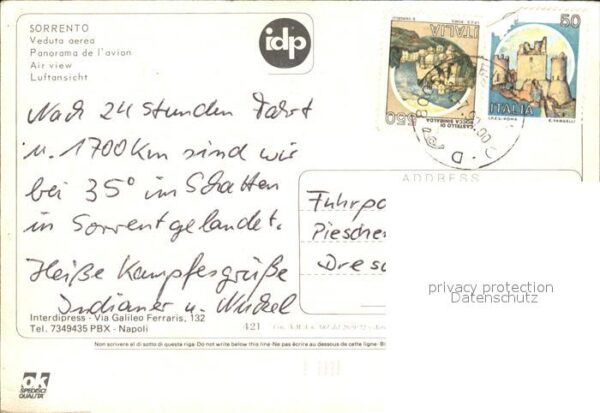 SORRENTO
Veduta aerea
Panorama de l'avion
Air view
Luftansicht
idp
ITALIA
CASTELLO DI
ROCCA SINIBALDA
550
50
ITALIA
Nach 24 Stunden Fahrt
u. 1700 Km sind wir
bei 35° im Schatten
in Sorrent gelandet.
Heiße Kampfesgrüße
Indianer u. Nuckel
ADDRESS
Fuhrpa
Piesche
Dres
privacy protection
Datenschutz
Interdipress - Via Galileo Ferraris, 132
Tel. 7349435 PBX - Napoli
421
Non scrivere al di sotto di questa riga · Do not write below this line · Ne pas écrire au dessous de cette ligne · B
ok
SPEDISCI
QUALITA'